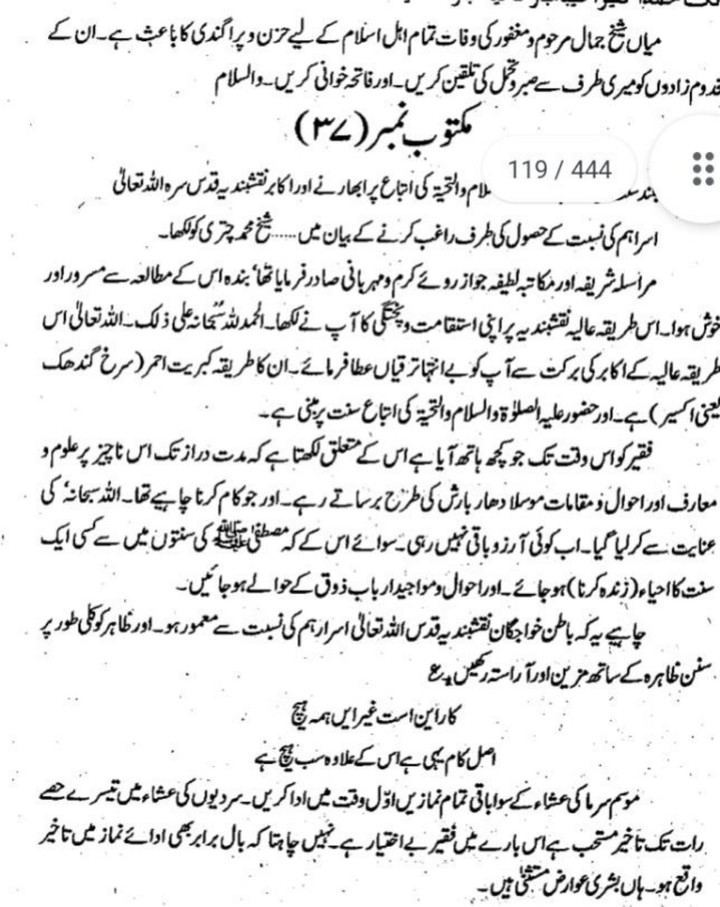 میاں شیخ جمال مرحوم و مغفور کی وفات تمام اہل اسلام کے لیے حزن و پراگندی کا باعث ہے۔ ان کے
قدوم زادوں کو میری طرف سے صبر و تحمل کی تلقین کریں۔ اور فاتحہ خوانی کریں۔ والسلام
مکتوب نمبر (۳۷)
119 / 444
والتحیۃ کی اتباع پر ابھارنے اور اکابر نقشبندیہ قدس سرہ اللہ تعالیٰ
اسرارہم کی نسبت کے حصول کی طرف راغب کرنے کے بیان میں ...... شیخ محمد چتری کو لکھا۔
مراسلہ شریفہ اور مکاتبہ لطیفہ جو از روئے کرم و مہربانی صادر فرمایا تھا، بندہ اس کے مطالعہ سے مسرور اور
خوش ہوا۔ اس طریقہ عالیہ نقشبندیہ پر اپنی استقامت و پختگی کا آپ نے لکھا۔ الحمد للہ سبحانہ علیٰ ذلک۔ اللہ تعالیٰ اس
طریقہ عالیہ کے اکابر کی برکت سے آپ کو بے انتہا ترقیاں عطا فرمائے۔ ان کا طریقہ کبریت احمر (سرخ گندھک
یعنی اکسیر) ہے۔ اور حضور علیہ الصلوٰۃ والسلام والتحیۃ کی اتباع سنت پر مبنی ہے۔
فقیر کو اس وقت تک جو کچھ ہاتھ آیا ہے اس کے متعلق لکھتا ہے کہ مدت دراز تک اس ناچیز پر علوم و
معارف اور احوال و مقامات موسلا دھار بارش کی طرح برساتے رہے۔ اور جو کام کرنا چاہیے تھا۔ اللہ سبحانہٗ کی
عنایت سے کر لیا گیا۔ اب کوئی آرزو باقی نہیں رہی۔ سوائے اس کے کہ مصطفیٰ ﷺ کی سنتوں میں سے کسی ایک
سنت کا احیاء (زندہ کرنا) ہو جائے۔ اور احوال و مواجید ارباب ذوق کے حوالے ہو جائیں۔
چاہیے یہ کہ باطن خواجگان نقشبندیہ قدس اللہ تعالیٰ اسرارہم کی نسبت سے معمور ہو۔ اور ظاہر کو کلی طور پر
سنن ظاہرہ کے ساتھ مزین اور آراستہ رکھیں۔ ع
کار این است غیر ایں ہمہ ہیچ
اصل کام یہی ہے اس کے علاوہ سب ہیچ ہے
موسم سرما کی عشاء کے سوا باقی تمام نمازیں اوّل وقت میں ادا کریں۔ سردیوں کی عشاء میں تیسرے حصے
رات تک تاخیر مستحب ہے اس بارے میں فقیر بے اختیار ہے۔ نہیں چاہتا کہ بال برابر بھی ادائے نماز میں تاخیر
واقع ہو۔ ہاں بشری عوارض مستثنیٰ ہیں۔